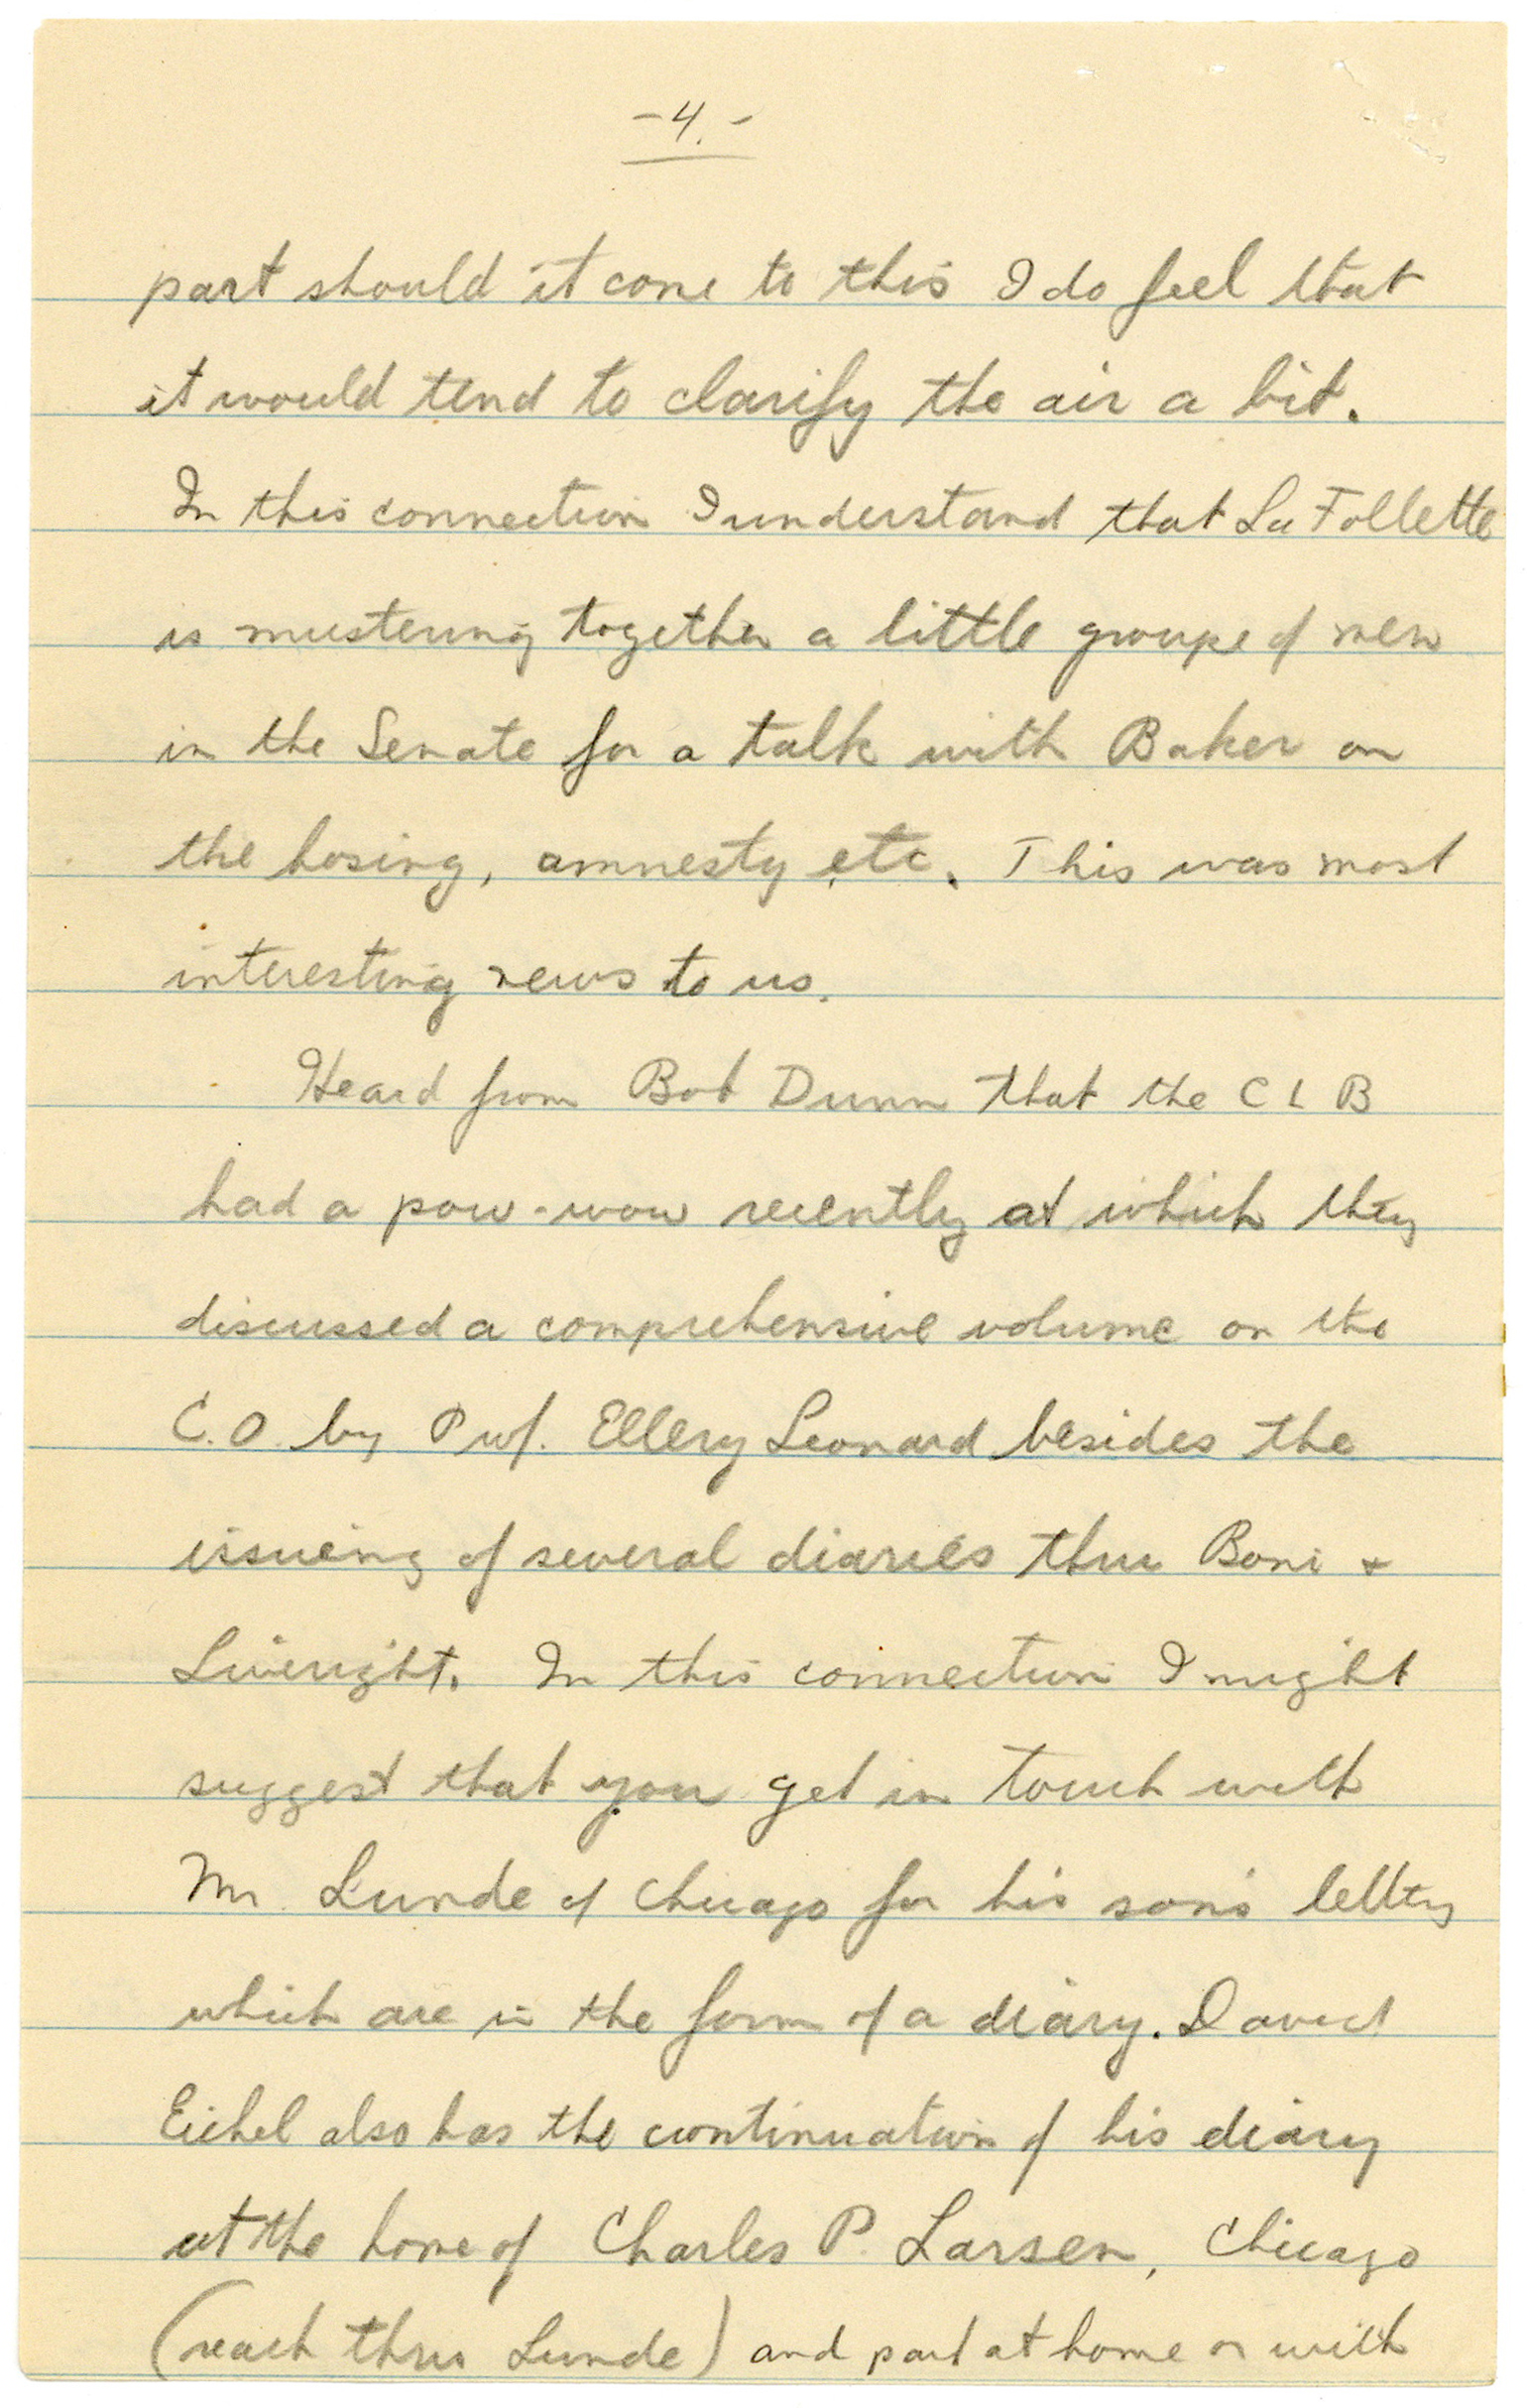 -4.-
part should it come to this I do feel that
it would tend to clarify the air a bit.
In this connection I understand that La Follette
is mustering together a little groupe of men
in the Senate for a talk with Baker on
the hosing, amnesty etc. This was most
interesting news to us.
Heard from Bob Dunn that the C L B
had a pow-wow recently at which they
discussed a comprehensive volume on the
C.O. by Prof. Ellery Leonard besides the
issueing of several diaries thru Boni +
Liveright. In this connection I might
suggest that you get in touch with
Mr. Lunde of Chicago for his son's letters
which are in the form of a diary. David
Eichel also has the continuation of his diary
at the home of Charles P. Larsen, Chicago
(reach thru Lunde) and part at home or with